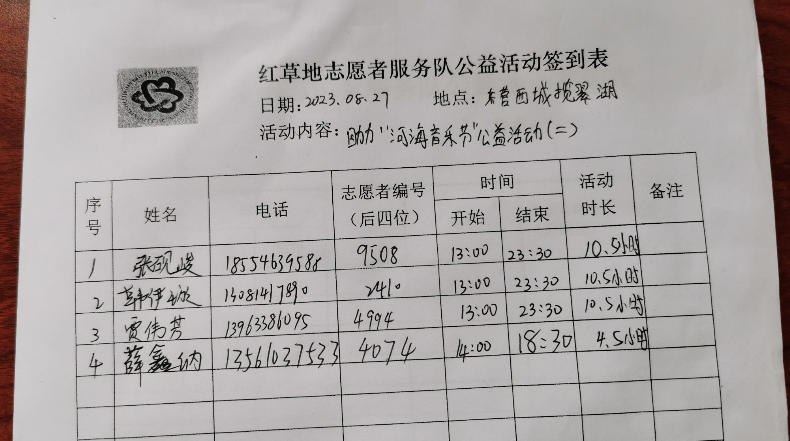 红草地志愿者服务队公益活动签到表
日期:2023.08.27 地点:东营西城揽翠湖
活动内容:助力"河海音乐节"公益活动(二)
序号 姓名 电话 志愿者编号(后四位) 时间 开始 结束 活动时长 备注
1 张砚峻 18554639588 9508 13:00 23:30 10.5小时
2 韩伊 13081417890 2410 13:00 23:30 10.5小时
3 贾伟芳 13963386095 4994 13:00 23:30 10.5小时
4 薛鑫纳 13561037533 4074 14:00 18:30 4.5小时